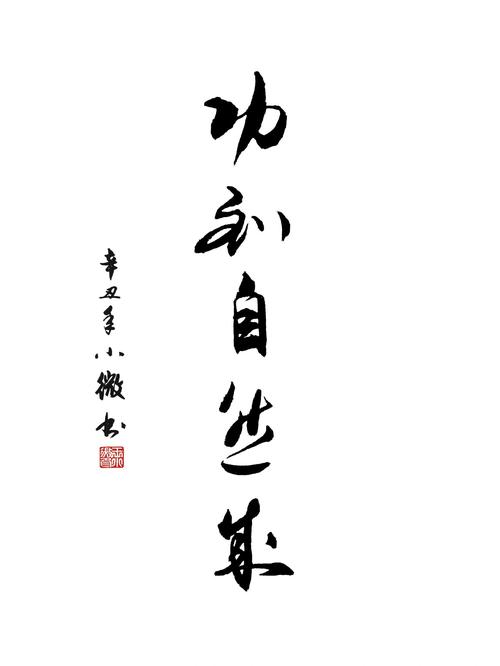 功到自然成
辛丑年小微书